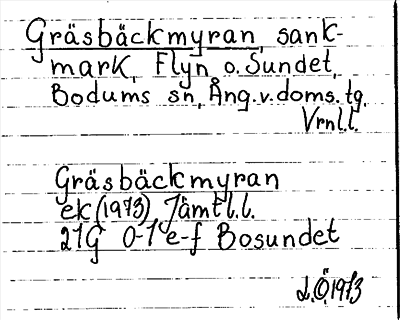 Gräsbäckmyran, sank-
mark, Flyn o. Sundet,
Bodums sn, Ång.v.doms.tg,
Vrnl.l.
Gräsbäckmyran
ek (1973) Jämtl.l.
21G 0-1 e-f Bosundet
L.Ö 1973